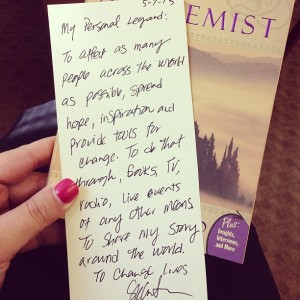 5-7-13
My Personal Legend:
To affect as many
people across the world
as possible, spread
hope, inspiration and
provide tools for
change. To do that
through, Books, TV,
radio, live events
of any other means
To share my story
around the world.
To Change lives
EMIST
Plus:
Insights,
Interviews,
and More